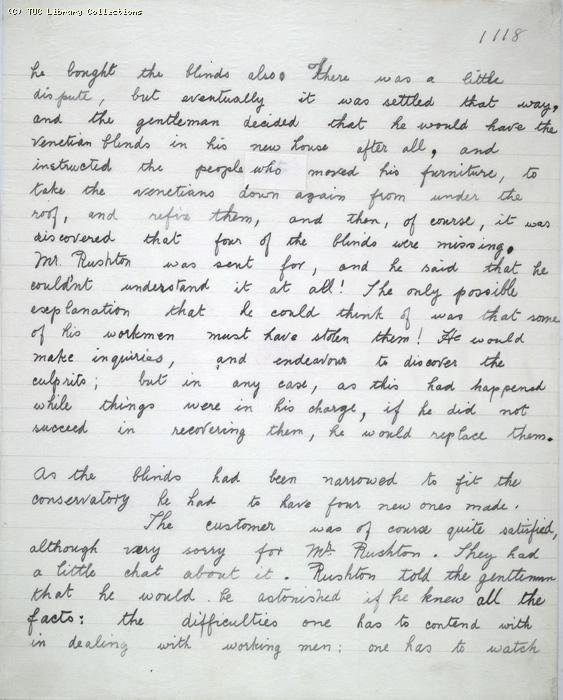 (C) TUC Library Collections
1118
he bought the blinds also. There was a little
dispute, but eventually it was settled that way,
and the gentleman decided that he would have the
Venetian blinds in his new house after all, and
instructed the people who moved his furniture, to
take the venetians down again from under the
roof, and refix them, and then, of course, it was
discovered that four of the blinds were missing.
Mr. Rushton was sent for, and he said that he
couldn't understand it at all! The only possible
explanation that he could think of was that some
of his workmen must have stolen them! He would
make inquiries, and endeavour to discover the
culprits; but in any case, as this had happened
while things were in his charge, if he did not
succeed in recovering them, he would replace them.
As the blinds had been narrowed to fit the
conservatory he had to have four new ones made.
The customer was of course quite satisfied,
although very sorry for Mr. Rushton. They had
a little chat about it. Rushton told the gentleman
that he would be astonished if he knew all the
facts: the difficulties one has to contend with
in dealing with working men: one has to watch